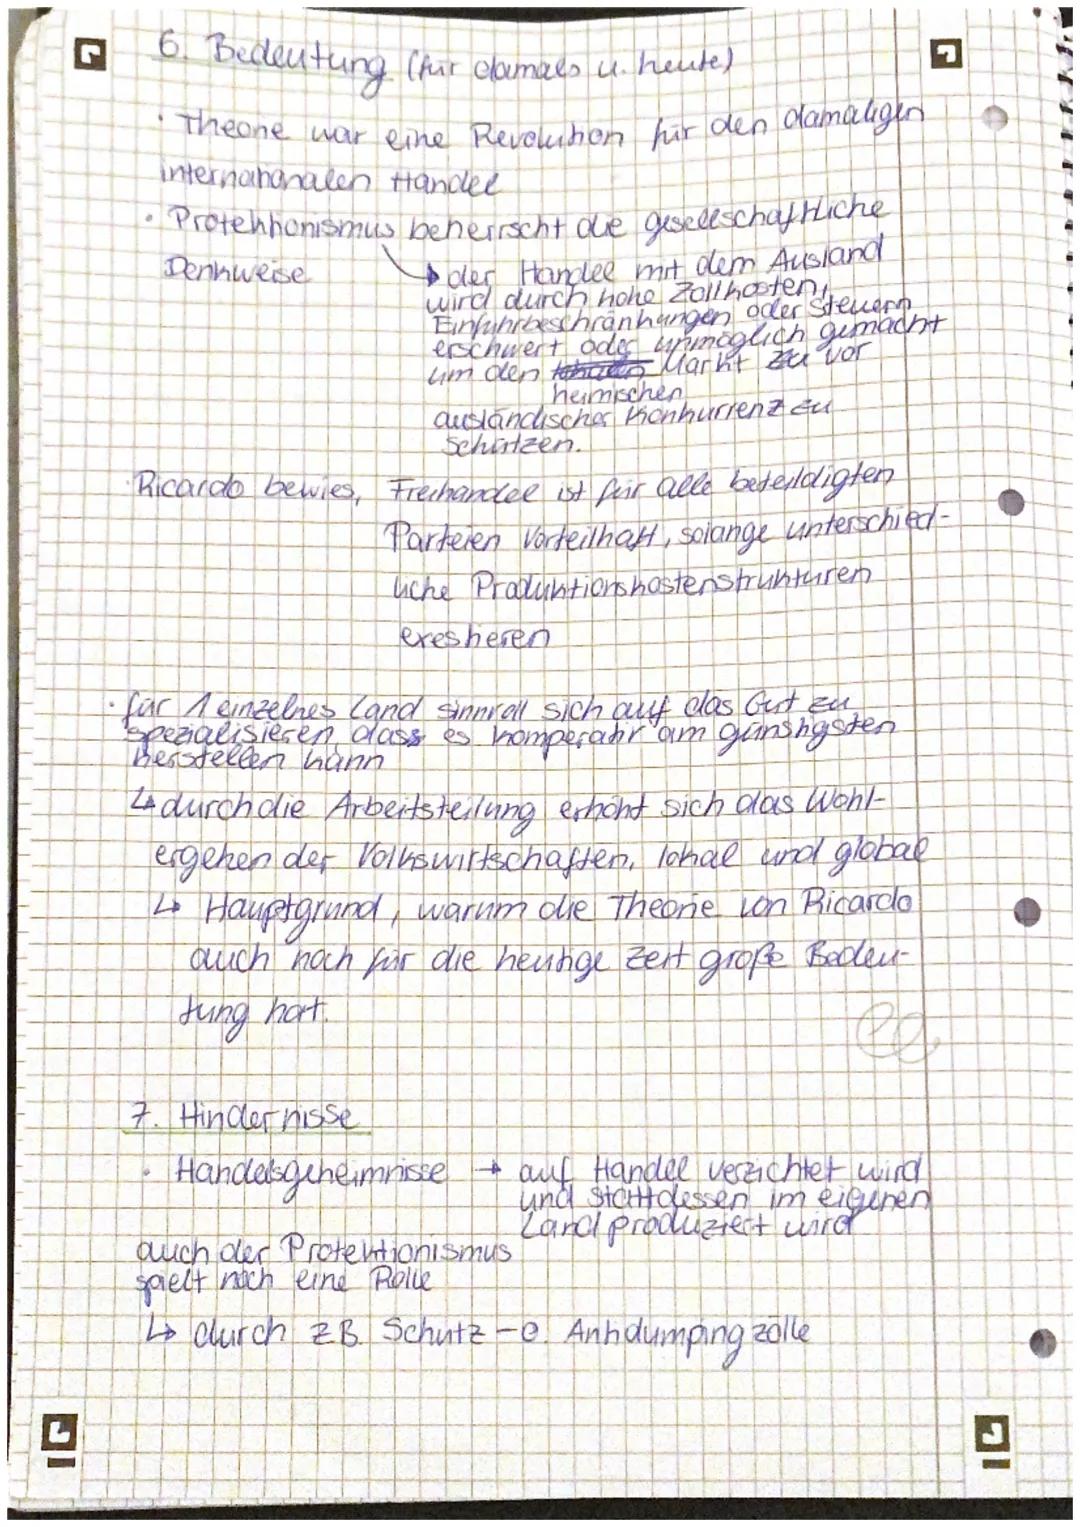 6. Bedeutung (für damals u. heute)
• Theorie war eine Revolution für den damaligen
internationalen Handel
• Protektionismus beherrscht die gesellschaftliche
Denkweise
→ der Handel mit dem Ausland
wird durch hohe Zollkosten,
Einfuhrbeschränkungen oder Steuern
erschwert oder unmöglich gemacht
um den Markt zu vor
heimischen
ausländischer Konkurrenz zu
schützen.
Ricardo bewies, Freihandel ist für alle beteildigten
Parteien Vorteilhaft, solange unterschied-
liche Produktionskostenstrukturen
exestieren
• für 1 einzelnes Land sinnvoll sich auf das Gut zu
spezialisieren, dass es komperativ am günstigsten
herstellen kann
↳ durch die Arbeitsteilung erhöht sich das Wohl-
ergehen der Volkswirtschaften, lokal und global
↳ Hauptgrund, warum die Theorie von Ricardo
auch noch für die heutige Zeit große Bedeu-
tung hat.
7. Hindernisse
• Handelsgeheimnisse → auf Handel verzichtet wird
und stattdessen im eigenen
Land produziert wird
auch der Protektionismus
spielt noch eine Rolle
↳ durch z.B. Schutz- o. Antidumpingzölle